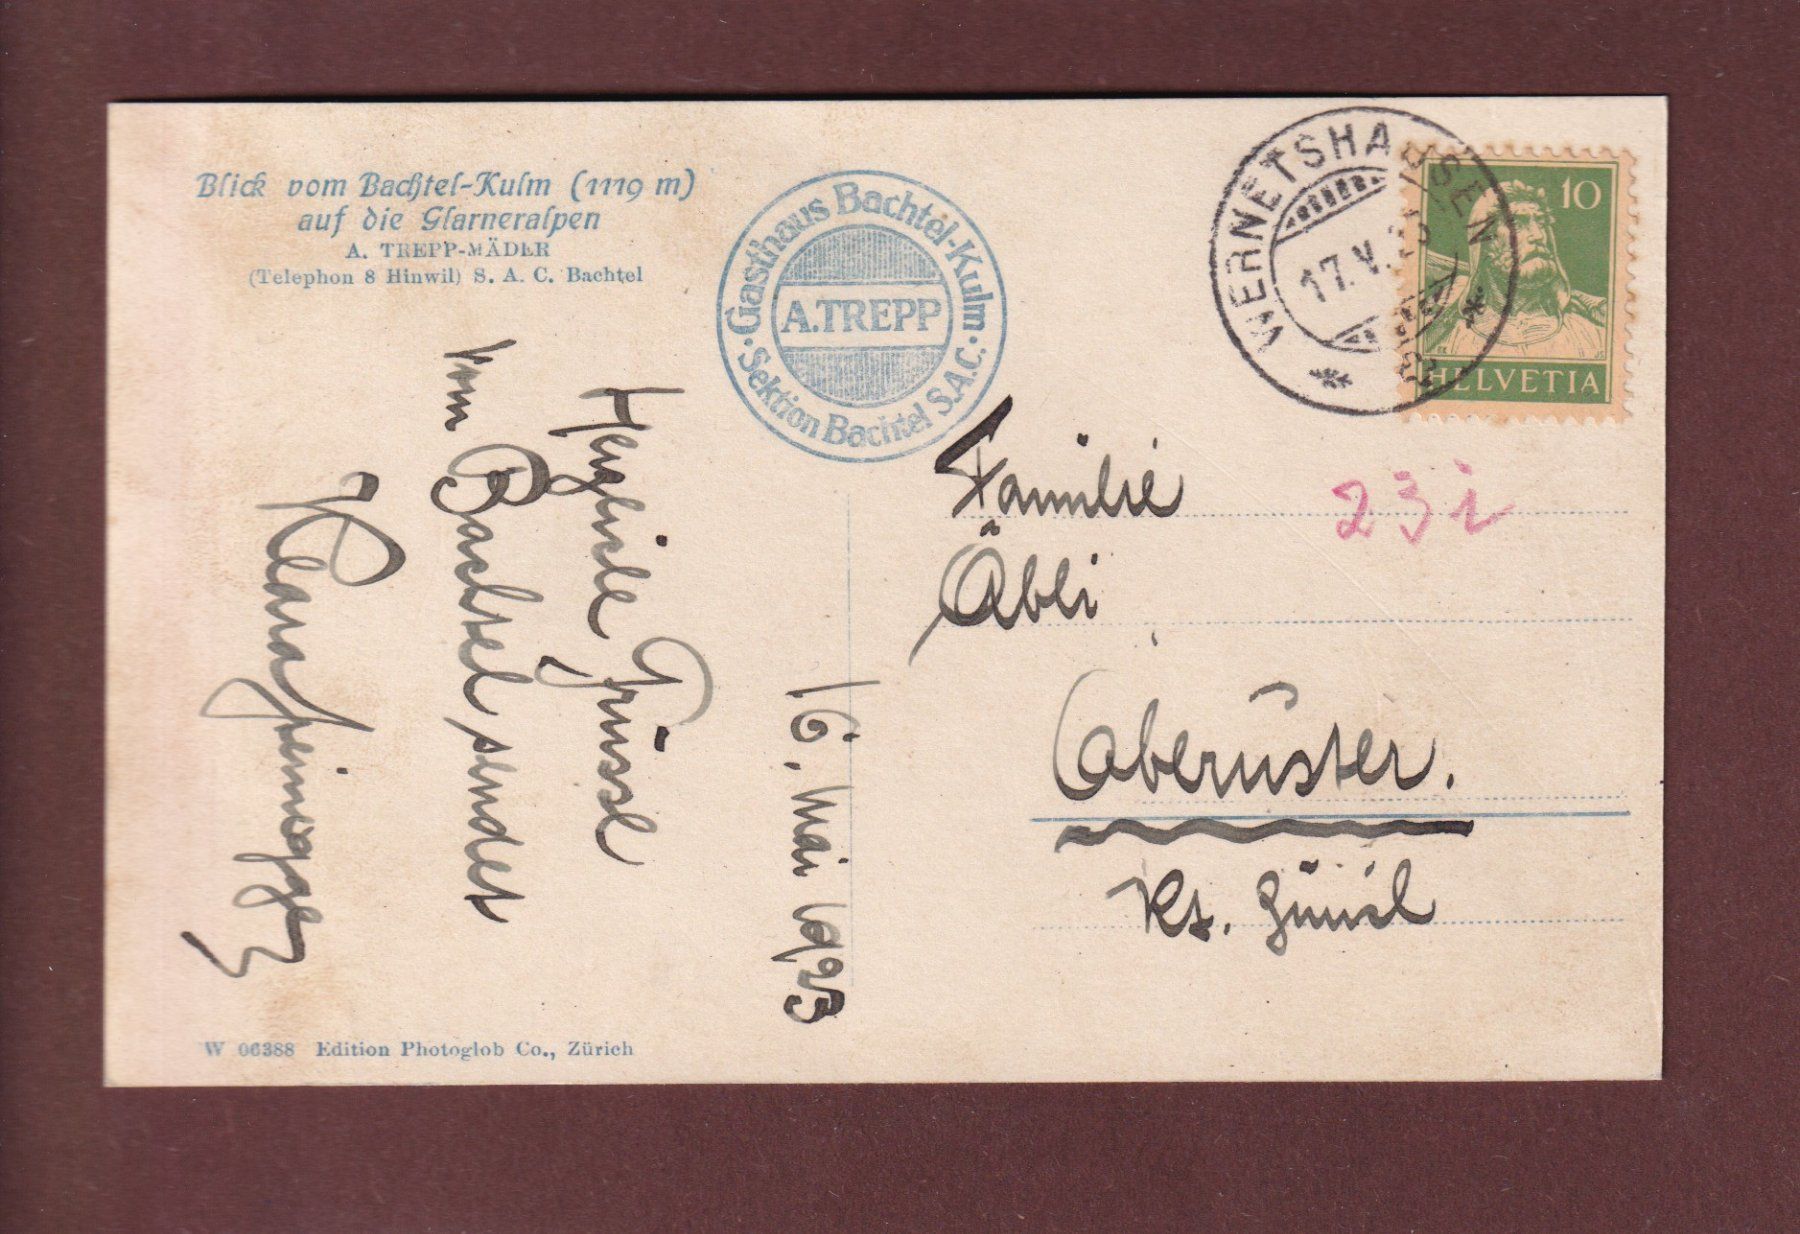 Blick vom Bachtel-Kulm (1119 m)
auf die Glarneralpen
A. TREPP-MÄDER
(Telephon 8 Hinwil) S. A. C. Bachtel
Gasthaus Bachtel-Kulm
A. TREPP
Sektion Bachtel S.A.C.
WERNETSHAUSEN
17. V. 23
10
HELVETIA
Herzliche Grüsse
vom Bachtel sendet
Klara
16. Mai 1923
Familie
Äbli
Oberuster.
Kt. Zürich
23
W 06388 Edition Photoglob Co., Zürich